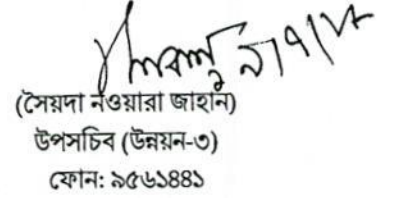 (সৈয়দা নওয়ারা জাহান)
উপসচিব (উন্নয়ন-৩)
ফোন: ৯৫৬১৪৪১